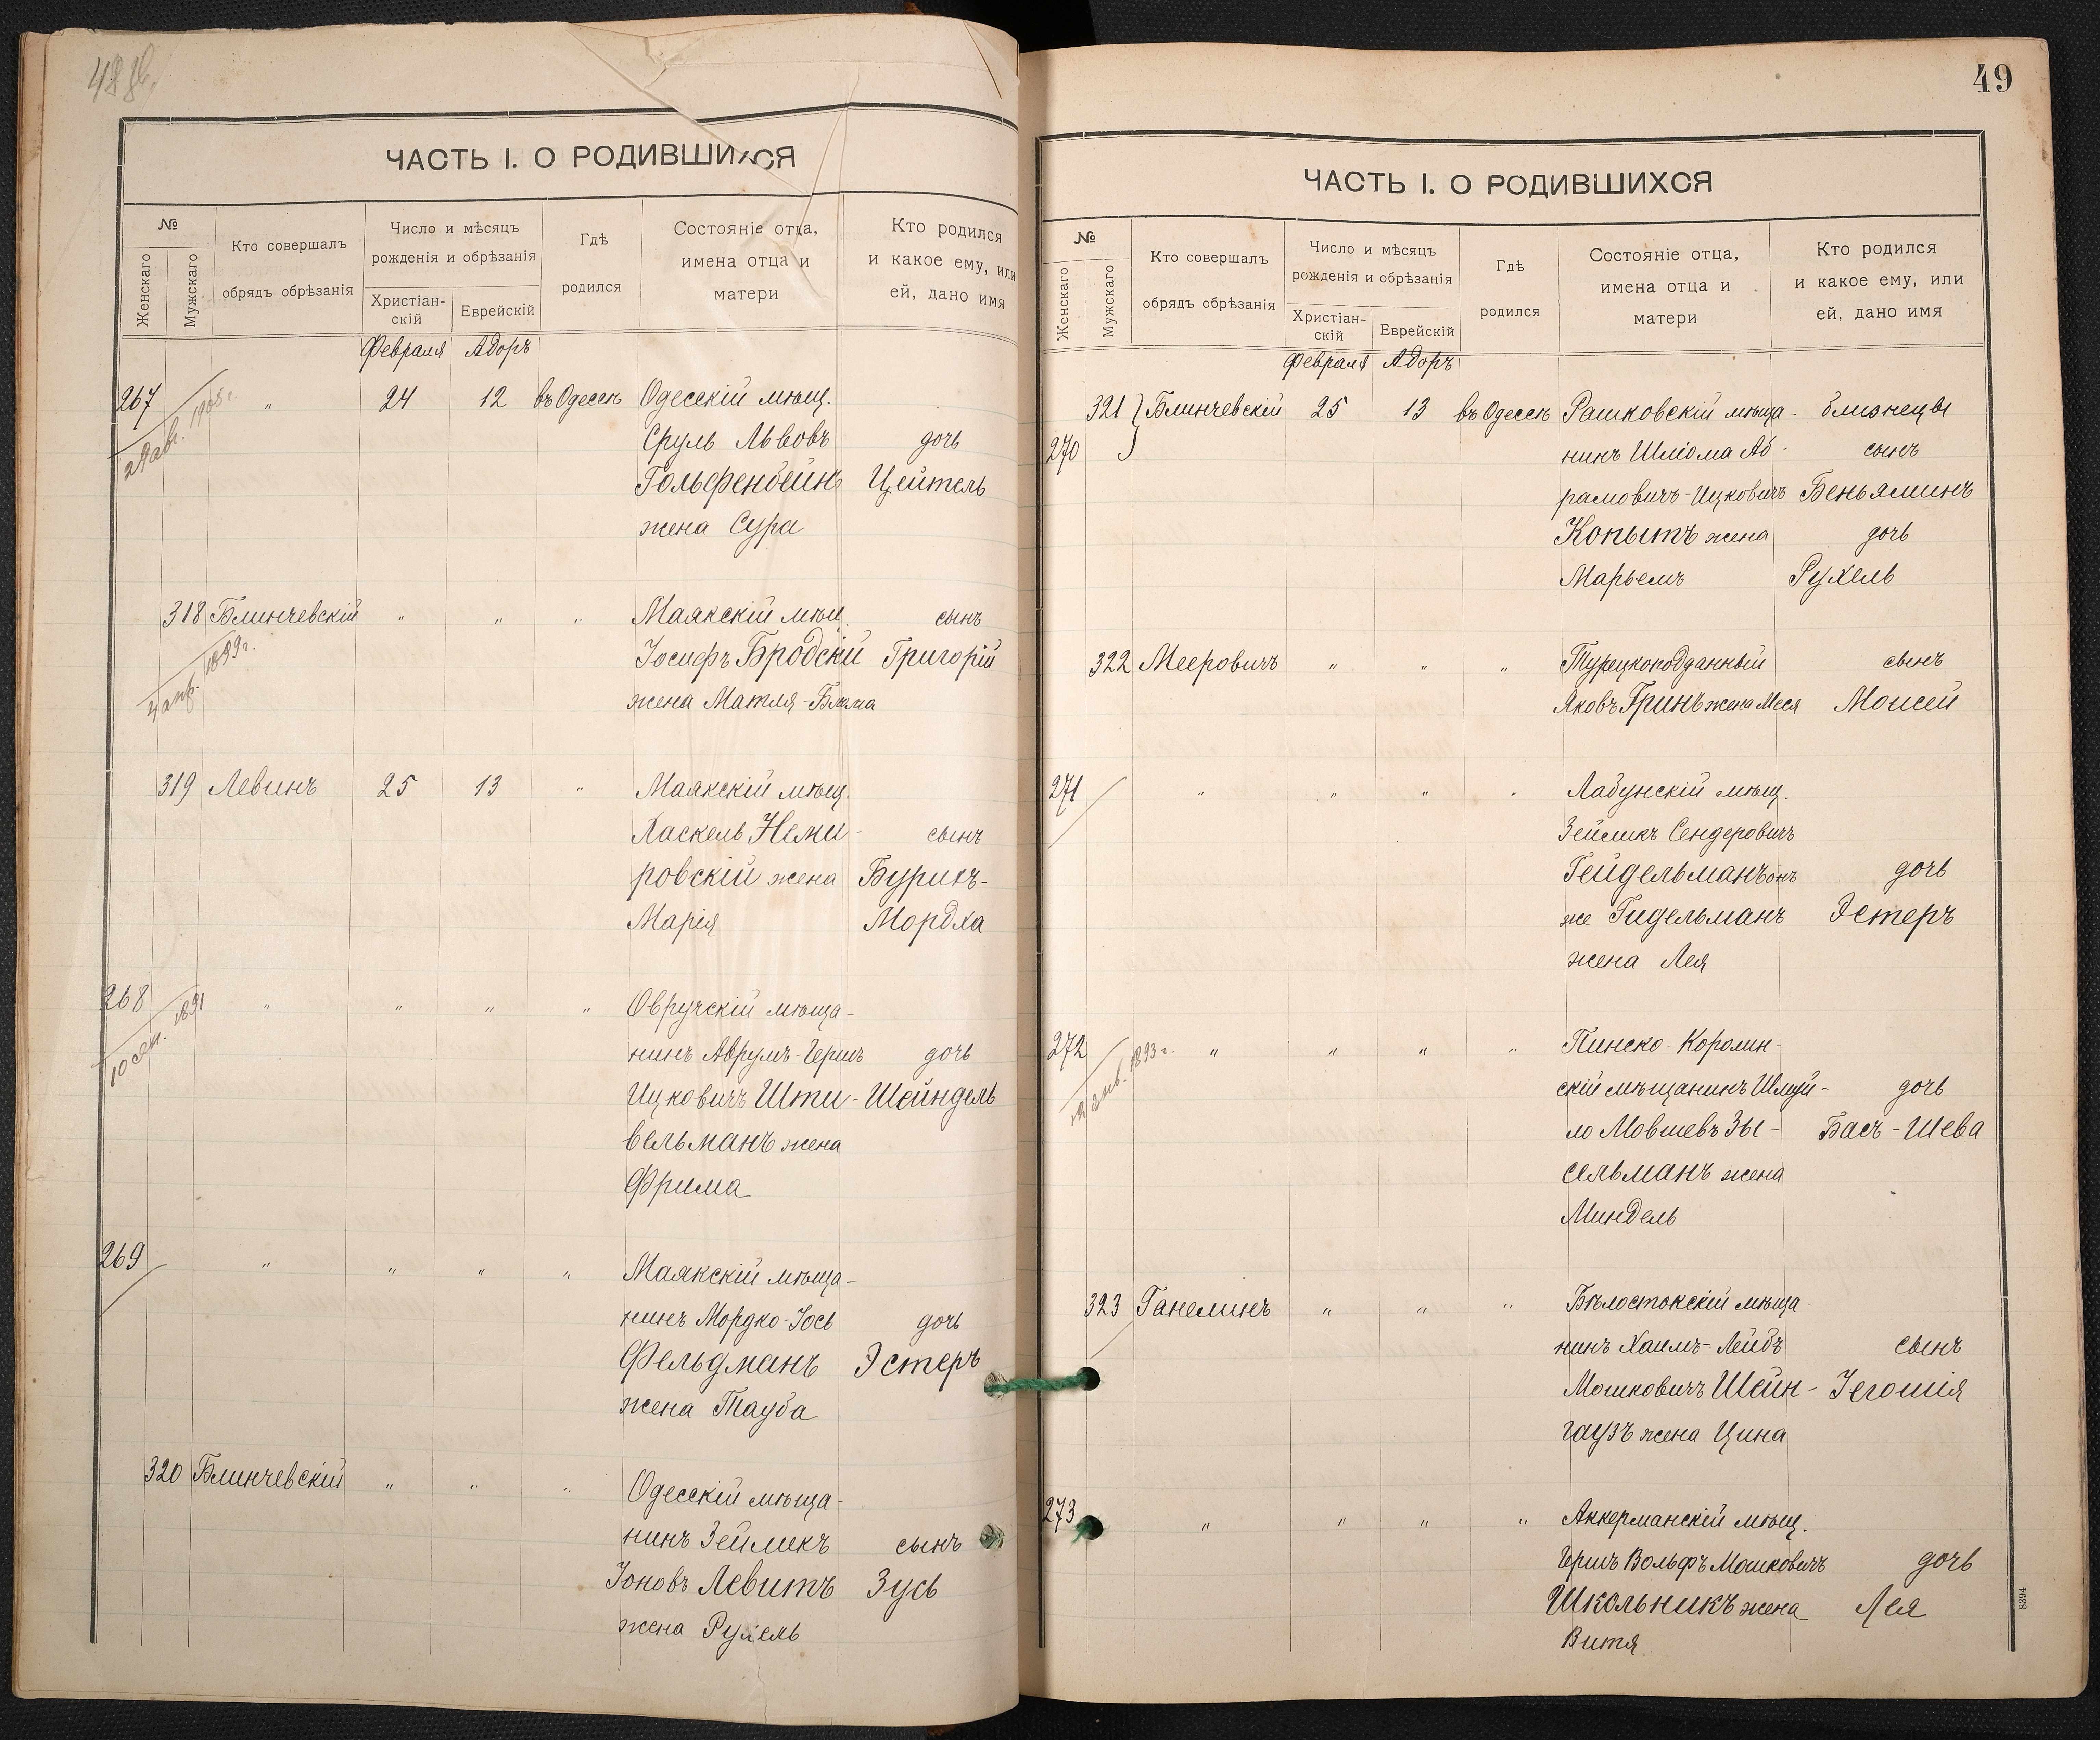 48
ЧАСТЬ I. О РОДИВШИХСЯ
№
Женскаго
Мужскаго
Кто совершалъ
обрядъ обрѣзанія
Число и мѣсяцъ
рожденія и обрѣзанія
Христіан-
скій
Еврейскій
Гдѣ
родился
Состояніе отца,
имена отца и
матери
Кто родился
и какое ему, или
ей, дано имя
Февраля Адоръ
267 " 24 12 въ Одессѣ Одесскій мѣщ.
29 авг. 1905 г.
Сруль Львовъ дочь
Гольфенбейнъ Цейтель
жена Сура
318 Блинчевскій " " " Маякскій мѣщ. сынъ
4 апр. 1899 г.
Іосифъ Бродскій Григорій
жена Матля-Блюма
319 Левинъ 25 13 " Маякскій мѣщ.
Хаскель Неми- сынъ
ровскій жена Бурихъ-
Марія Мордха
268 " " " " Овручскій мѣща-
10 сен. 1891
нинъ Аврумъ-Гершъ дочь
Ицковичъ Шти- Шейндель
вельманъ жена
Фрима
269 " " " " Маякскій мѣща-
нинъ Мордко-Іось дочь
Фельдманъ Эстеръ
жена Тауба
320 Блинчевскій " " " Одесскій мѣща-
нинъ Зейликъ сынъ
Іоновъ Левитъ Зусь
жена Рухель
49
ЧАСТЬ I. О РОДИВШИХСЯ
№
Женскаго
Мужскаго
Кто совершалъ
обрядъ обрѣзанія
Число и мѣсяцъ
рожденія и обрѣзанія
Христіан-
скій
Еврейскій
Гдѣ
родился
Состояніе отца,
имена отца и
матери
Кто родился
и какое ему, или
ей, дано имя
Февраля Адоръ
321 Блинчевскій 25 13 въ Одессѣ Рашковскій мѣща- близнецы
270 нинъ Шліома Аб- сынъ
рамовичъ-Ицковичъ Беньяминъ
Копытъ жена дочь
Марьемъ Рухель
322 Мееровичъ " " " Турецкоподданный сынъ
Яковъ Гринъ жена Меся Моисей
271 " " " " Лабунскій мѣщ.
Зейликъ Сендеровичъ
Гейдельманъ онъ дочь
же Гидельманъ Эстеръ
жена Лея
272 " " " " Пинско-Королин-
янв. 1893 г.
скій мѣщанинъ Шмуй- дочь
ло Мовшевъ Зы- Басъ-Шева
сельманъ жена
Миндель
323 Ганелинъ " " " Бѣлостокскій мѣща-
нинъ Хаимъ-Лейбъ сынъ
Мошковичъ Шейн- Іегошія
гаузъ жена Цина
273 " " " " Аккерманскій мѣщ.
Гершъ Вольфъ Мошковичъ дочь
Школьникъ жена Лея
Витя
8394